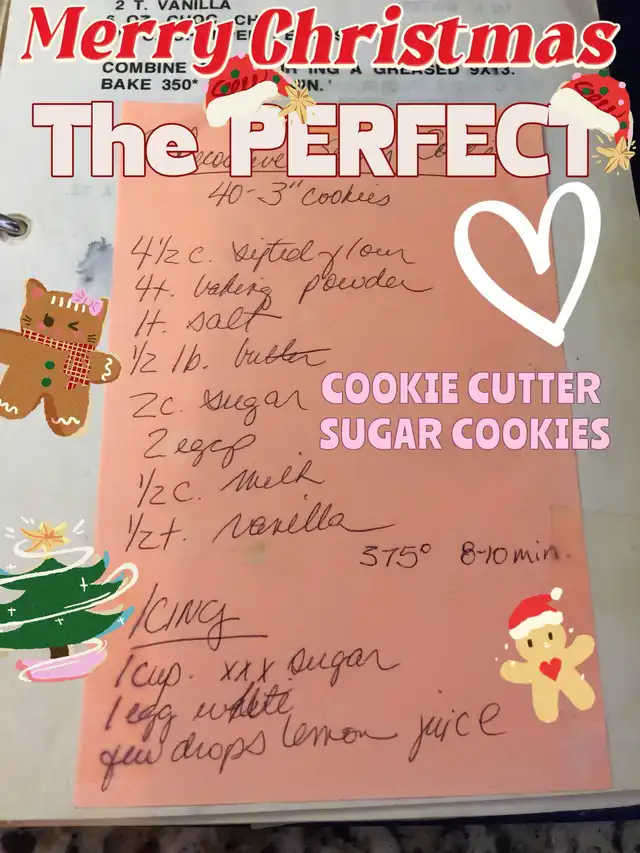 2 T. VANILLA
6 OZ. CHOC. CH
Merry Christmas
COMBINE
ING A GREASED 9X13.
BAKE 350*
The PERFECT
40-3" cookies
4 1/2 c. sifted flour
4t. baking powder
1t. salt
1/2 lb. butter
2c. sugar
2 eggs
1/2 c. milk
1/2 t. vanilla
375° 8-10 min.
COOKIE CUTTER
SUGAR COOKIES
ICING
1 cup. xxx sugar
1 egg white
few drops lemon juice